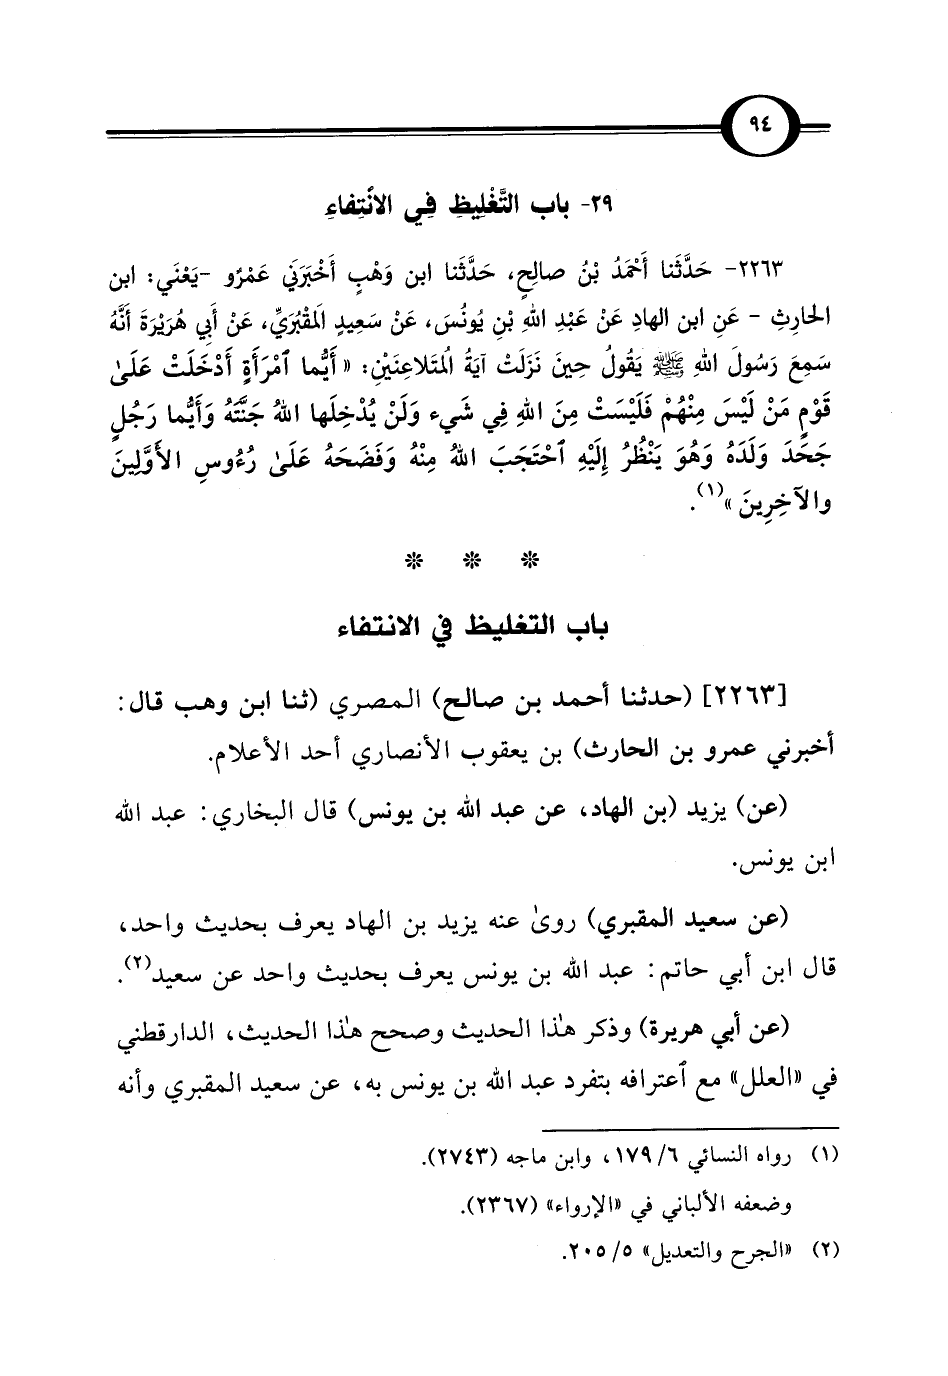 ٩٤
٢٩- باب التَّغْلِيظِ فِي الانْتِفاءِ
٢٢٦٣- حَدَّثَنا أَحْمَدُ بْنُ صالِحٍ، حَدَّثَنا ابن وَهْبٍ أَخْبَرَنِي عَمْرٌو -يَعْنَي: ابن
الحارِثِ - عَنِ ابن الهادِ عَنْ عَبْدِ اللهِ بْنِ يُونُسَ، عَنْ سَعِيدٍ المَقْبُرَيِّ، عَنْ أَبِي هُرَيْرَةَ أَنَّهُ
سَمِعَ رَسُولَ اللهِ ﷺ يَقُولُ حِينَ نَزَلَتْ آيَةُ المُتَلاعِنَيْنِ: « أَيُّما ٱمْرَأَةٍ أَدْخَلَتْ عَلَىٰ
قَوْمٍ مَنْ لَيْسَ مِنْهُمْ فَلَيْسَتْ مِنَ اللهِ فِي شَيء وَلَنْ يُدْخِلَها اللهُ جَنَّتَهُ وَأَيُّما رَجُلٍ
جَحَدَ وَلَدَهُ وَهُوَ يَنْظُرُ إِلَيْهِ ٱحْتَجَبَ اللهُ مِنْهُ وَفَضَحَهُ عَلَىٰ رُءُوسِ الأَوَّلِينَ
والآخِرِينَ »(١).
* * *
باب التغليظ في الانتفاء
[٢٢٦٣] (حدثنا أحمد بن صالح) المصري (ثنا ابن وهب قال:
أخبرني عمرو بن الحارث) بن يعقوب الأنصاري أحد الأعلام.
(عن) يزيد (بن الهاد، عن عبد الله بن يونس) قال البخاري: عبد الله
ابن يونس.
(عن سعيد المقبري) روىٰ عنه يزيد بن الهاد يعرف بحديث واحد،
قال ابن أبي حاتم: عبد الله بن يونس يعرف بحديث واحد عن سعيد(٢).
(عن أبي هريرة) وذكر هذا الحديث وصحح هذا الحديث، الدارقطني
في «العلل» مع ٱعترافه بتفرد عبد الله بن يونس به، عن سعيد المقبري وأنه
(١) رواه النسائي ٦/ ١٧٩، وابن ماجه (٢٧٤٣).
وضعفه الألباني في «الإرواء» (٢٣٦٧).
(٢) «الجرح والتعديل» ٥/ ٢٠٥.